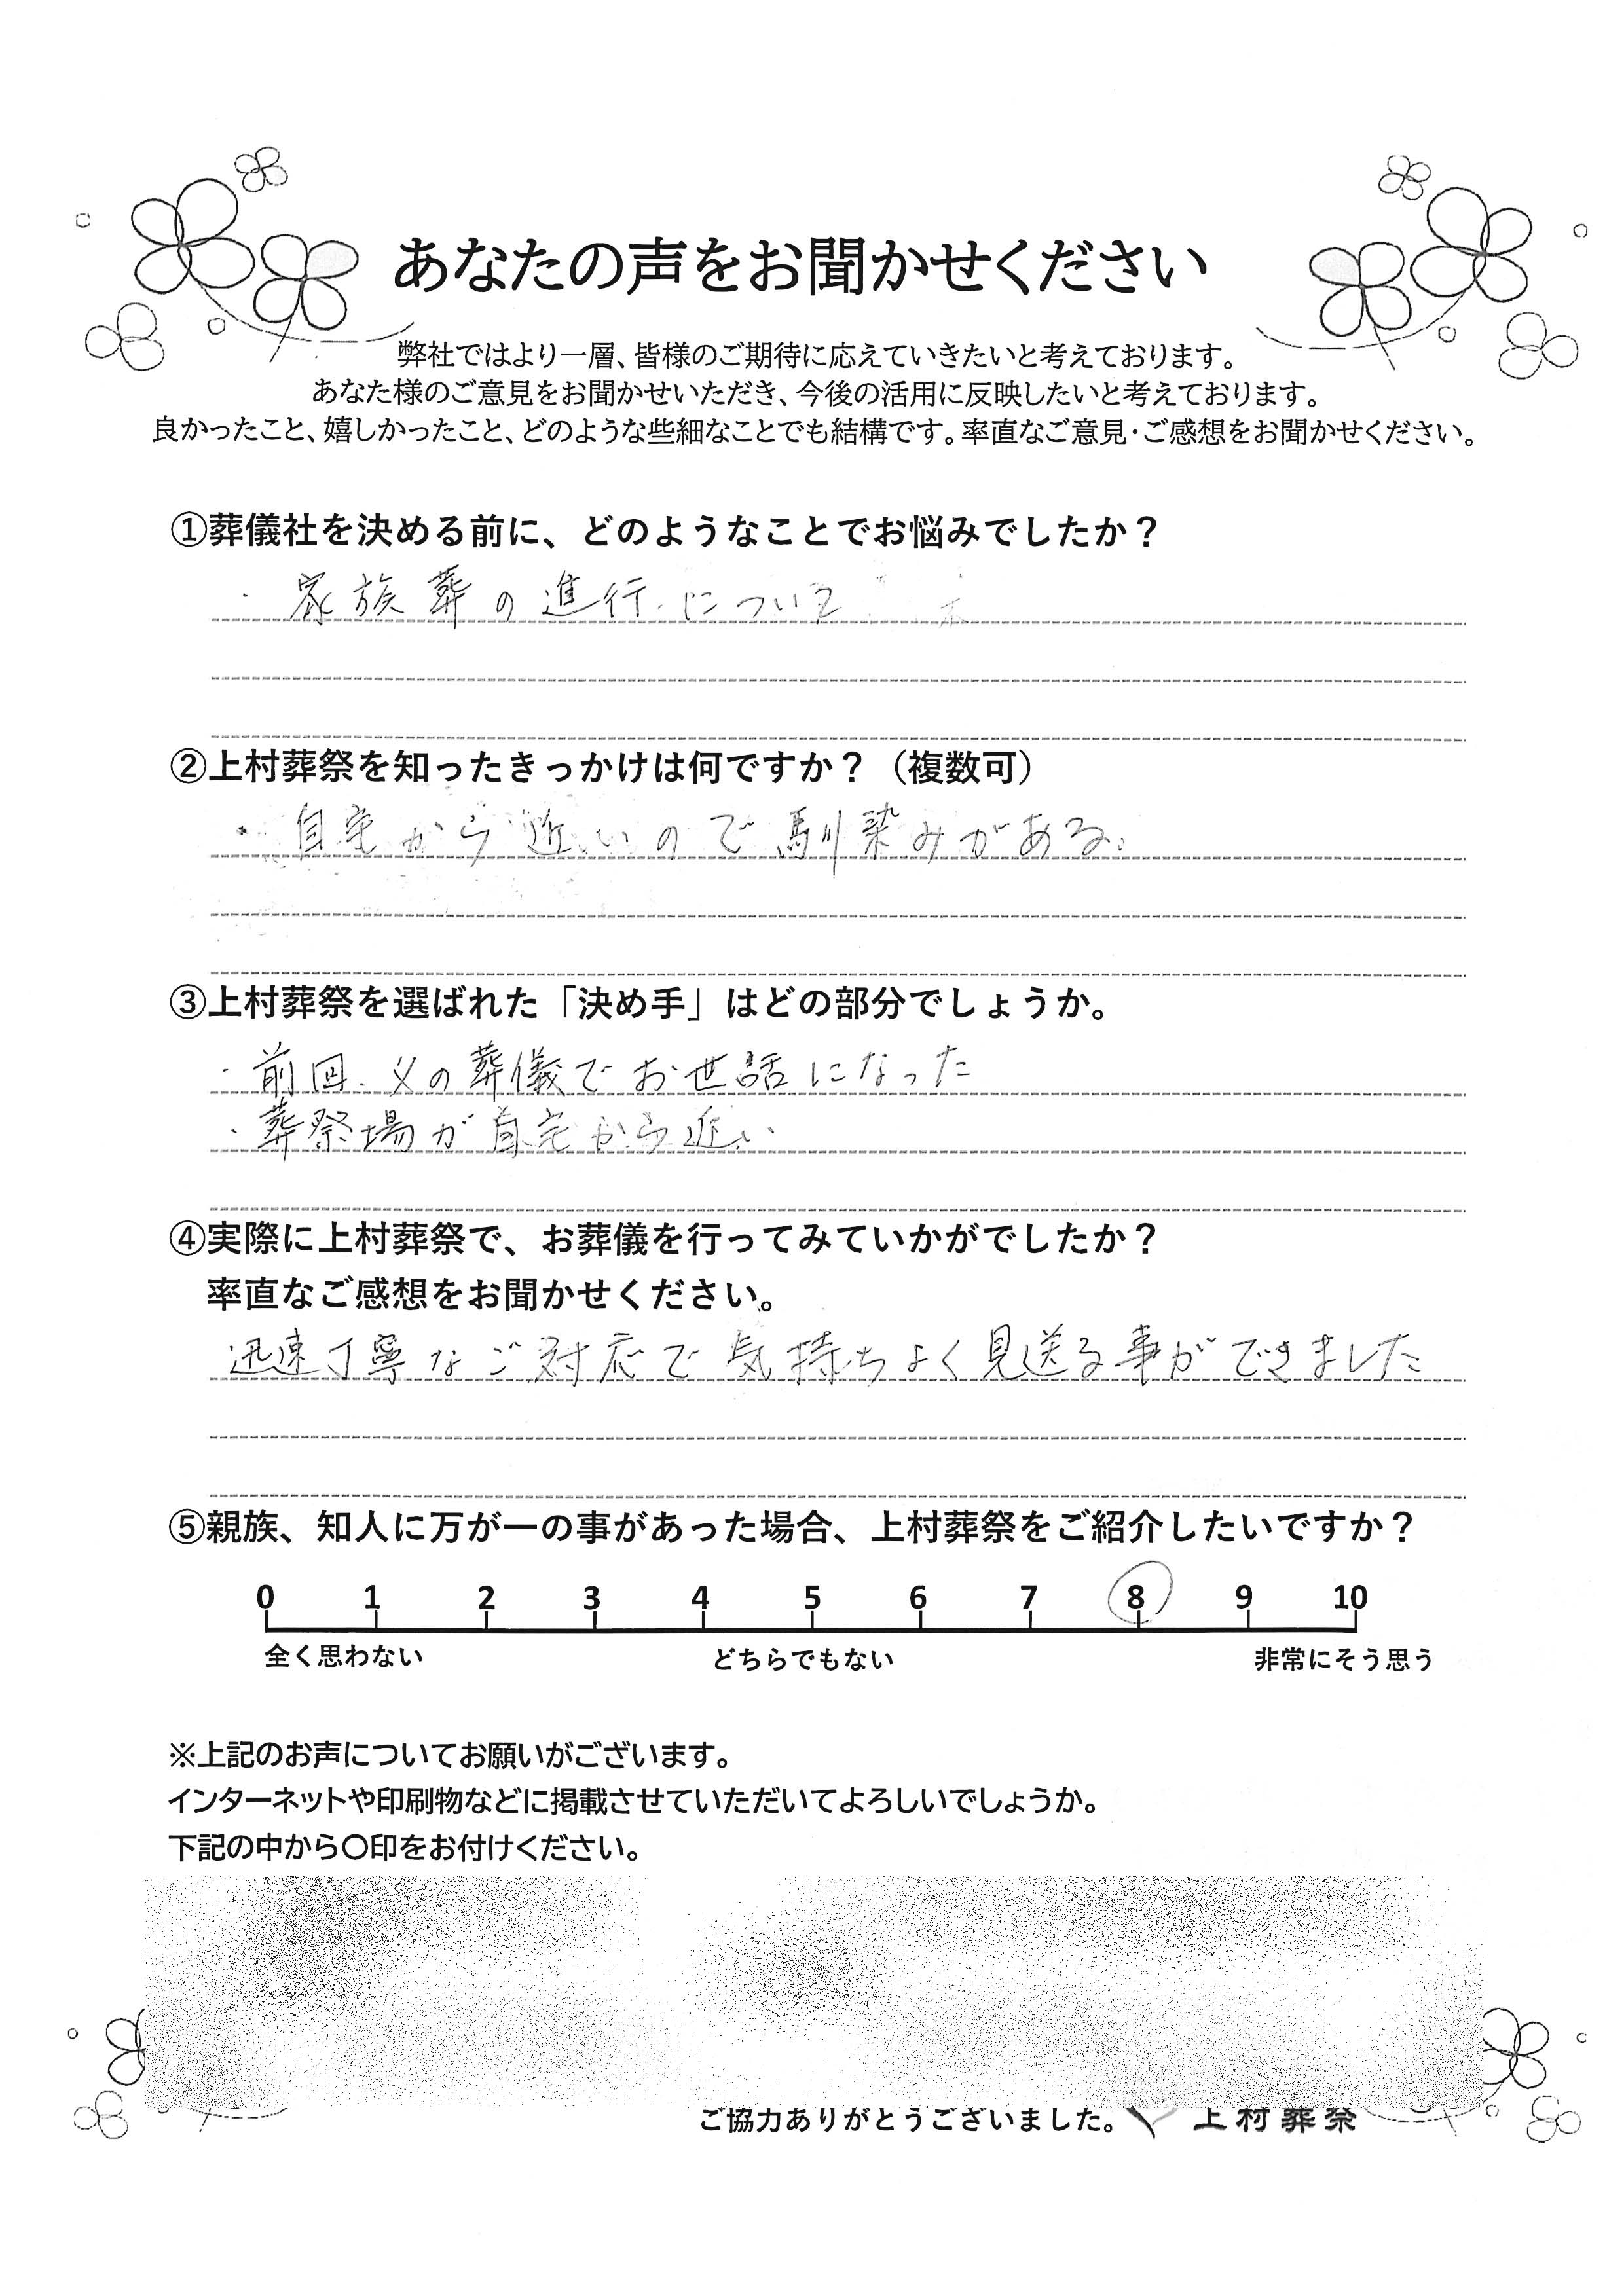 あなたの声をお聞かせください
弊社ではより一層、皆様のご期待に応えていきたいと考えております。
あなた様のご意見をお聞かせいただき、今後の活用に反映したいと考えております。
良かったこと、嬉しかったこと、どのような些細なことでも結構です。率直なご意見・ご感想をお聞かせください。
①葬儀社を決める前に、どのようなことでお悩みでしたか？
・家族葬の進行について
②上村葬祭を知ったきっかけは何ですか？（複数可）
・自宅から近いので馴染みがある。
③上村葬祭を選ばれた「決め手」はどの部分でしょうか。
・前回、父の葬儀でお世話になった
・葬祭場が自宅から近い
④実際に上村葬祭で、お葬儀を行ってみていかがでしたか？
率直なご感想をお聞かせください。
迅速丁寧なご対応で気持ちよく見送る事ができました
⑤親族、知人に万が一の事があった場合、上村葬祭をご紹介したいですか？
0 1 2 3 4 5 6 7 8 9 10
全く思わない どちらでもない 非常にそう思う
※上記のお声についてお願いがございます。
インターネットや印刷物などに掲載させていただいてよろしいでしょうか。
下記の中から〇印をお付けください。
ご協力ありがとうございました。 上村葬祭